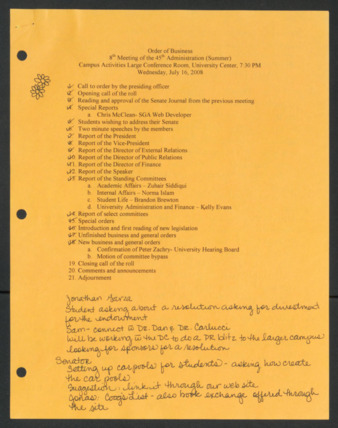 Order of Business
8th Meeting of the 45th Administration (Summer)
Campus Activities Large Conference Room, University Center, 7:30 PM
Wednesday, July 16, 2008
1. Call to order by the presiding officer
2. Opening call of the roll
3. Reading and approval of the Senate Journal from the previous meeting
4. Special Reports
a. Chris McClean- SGA Web Developer
5. Students wishing to address their Senate
6. Two minute speeches by the members
7. Report of the President
8. Report of the Vice-President
9. Report of the Director of External Relations
10. Report of the Director of Public Relations
11. Report of the Director of Finance
12. Report of the Speaker
13. Report of the Standing Committees
a. Academic Affairs - Zubair Siddiqui
b. Internal Affairs - Norma Islam
c. Student Life - Brandon Brewton
d. University Administration and Finance - Kelly Evans
14. Report of select committees
15. Special orders
16. Introduction and first reading of new legislation
17. Unfinished business and general orders
18. New business and general orders
a. Confirmation of Peter Zachry- University Hearing Board
b. Motion of committee bypass
19. Closing call of the roll
20. Comments and announcements
21. Adjournment
Jonathan
Student asking about a resolution asking for divestment
for the endowment
Sam- connect w Dr. Dan & Dr. Carlucci
will be working w the DC to do a PR blitz to the larger campus
looking for sponsors for a resolution
Senator
Setting up carpools for students - asking how create
the car pools
Suggestion: link it through our web site
Coogs List - also book exchange offered through
the site